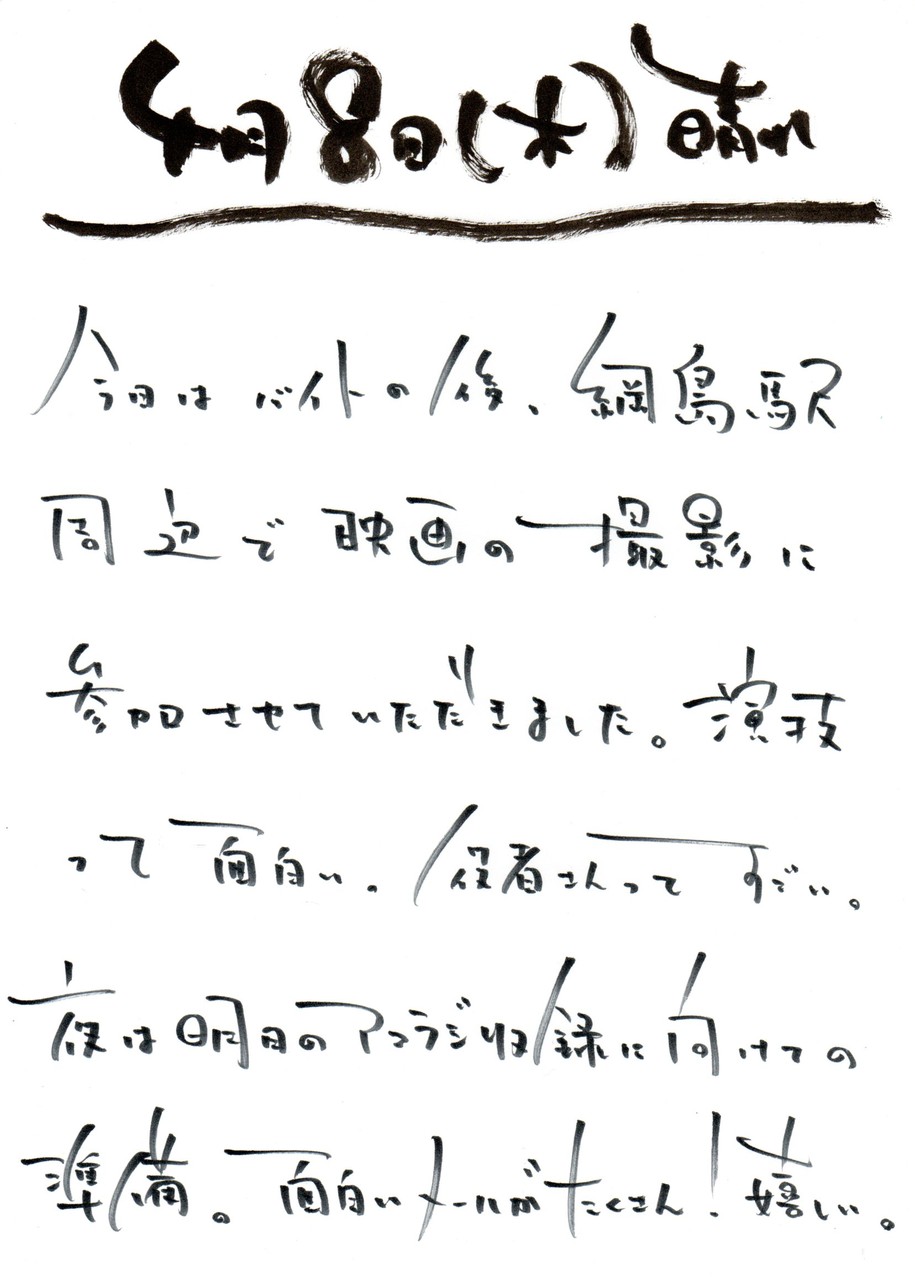 4月8日(木)晴れ
今日はバイトの後、綱島駅
周辺で映画の撮影に
参加させていただきました。演技
って面白い。役者さんってすごい。
夜は明日のアコラジ収録に向けての
準備。面白いメールがたくさん！嬉しい。